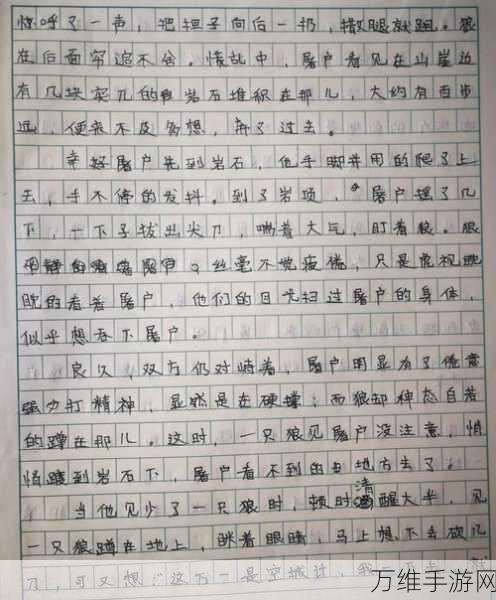 惊呼了一声，把担子向后一扔，撒腿就跑。狼
在后面穷追不舍。慌乱中，屠户看见在山崖边
有几块突兀的岩石堆积在那儿，大约有百步
远，便来不及多想，奔了过去。
幸好屠户先到岩石，他手脚并用的爬了上
去，手不停的发抖。到了岩顶，屠户摇了几
下，一下子拔出尖刀，喘着大气，盯着狼。狼
丝毫不觉疲倦，只是虎视眈
眈的看着屠户，他们的目光扫过屠户的身体，
似乎想吞下屠户。
良久，双方仍对峙着，屠户明显为了
强力打精神，显然是在硬撑；而狼却神态自若
的蹲在那儿。这时，一只狼见屠户没注意，悄
悄踱到岩石下，屠户看不到的地方去了。
当他见少了一只狼时，顿时清醒大半，见
一只狼蹲在地上，眯着眼睛，马上想下去砍几
刀，可又想：“这万一是空城计，我一
万维手游网